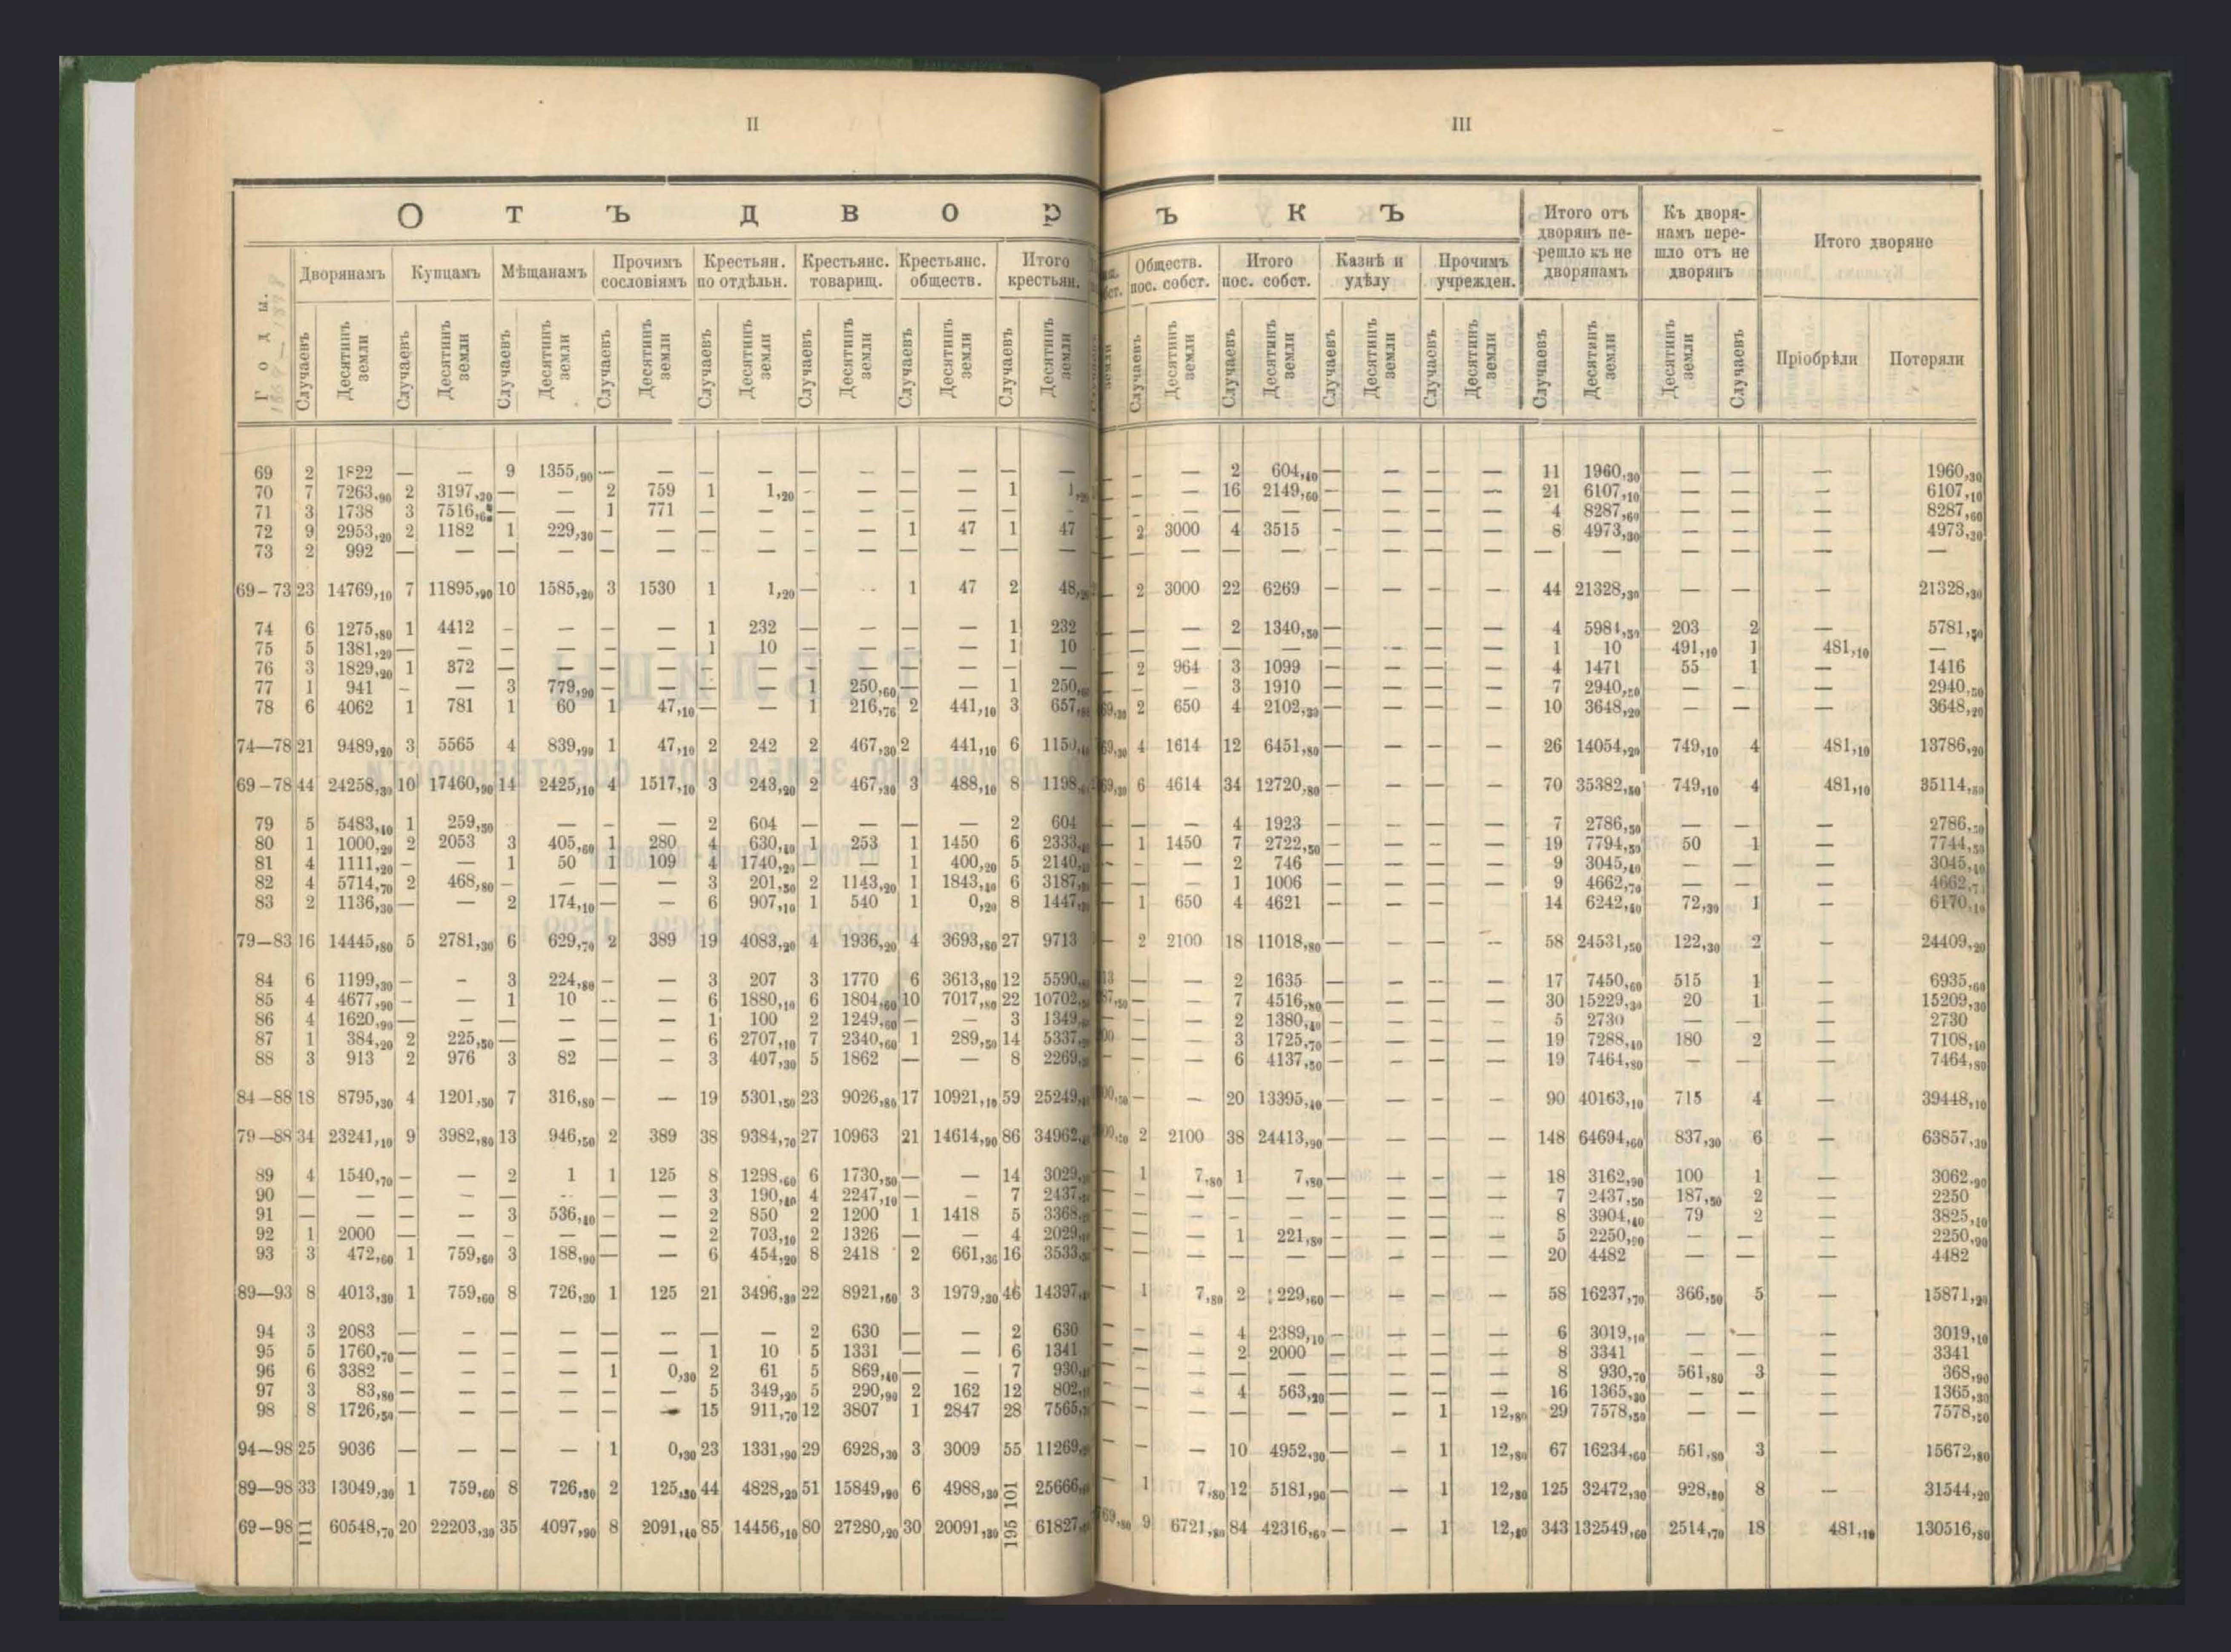 II
III
О Т Ъ Д В О Р
Ъ К Ъ
Годы.
Дворянамъ Купцамъ Мѣщанамъ Прочимъ сословіямъ Крестьян. по отдѣльн. Крестьянс. товарищ. Крестьянс. обществ. Итого крестьян.
Обществ. пос. собст. Итого пос. собст. Казнѣ и удѣлу Прочимъ учрежден. Итого отъ дворянъ перешло къ не дворянамъ Къ дворянамъ перешло отъ не дворянъ Итого дворяне
Случаевъ Десятинъ земли Случаевъ Десятинъ земли Случаевъ Десятинъ земли Случаевъ Десятинъ земли Случаевъ Десятинъ земли Случаевъ Десятинъ земли Случаевъ Десятинъ земли Случаевъ Десятинъ земли
Случаевъ Десятинъ земли Случаевъ Десятинъ земли Случаевъ Десятинъ земли Случаевъ Десятинъ земли Случаевъ Десятинъ земли Десятинъ земли Случаевъ Пріобрѣли Потеряли
69 2 1822 — — 9 1355,90 — — — — — — — — — — — — 2 604,40 — — — — 11 1960,30 — — — 1960,30
70 7 7263,90 2 3197,30 — — 2 759 1 1,20 - — — — 1 — — 16 2149,60 — — — — 21 6107,10 — — — 6107,10
71 3 1738 3 — — 1 771 — — — — — — — — — — — — — — — — 4 8287,60 — — — 8287,60
72 9 2953,20 2 1182 1 229,30 — — — — — — 1 47 1 47 2 3000 4 3515 - — — — 8 4973,30 — — — 4973,30
73 2 992 — — — — — — — — — — — — — — — — — — — — — — — — — — — —
69–73 23 14769,10 7 11895,90 10 1585,20 3 1530 1 1,20 — - 1 47 2 2 3000 22 6269 — — — — 44 21328,30 — — — 21328,30
74 6 1275,80 1 4412 - — — — 1 232 — — — — 1 232 — — 2 1340,50 — — — — 4 203 2 —
75 5 1381,20 — — — — — — 1 10 — — — — 1 10 — — — — — — — — 1 10 491,10 1 481,10 —
76 3 1829,20 1 372 — — — — — — — — — — — — 2 964 3 1099 — — — — 4 1471 55 1 — 1416
77 1 941 - — 3 779,90 — — — — 1 250,60 — — 1 — — 3 1910 — — — — 7 2940,50 — — — 2940,50
78 6 4062 1 781 1 60 1 47,10 — — 1 216,76 2 441,10 3 2 650 4 2102,30 — — — — 10 3648,20 — — — 3648,20
74—78 21 9489,20 3 5565 4 839,90 1 47,10 2 242 2 467,30 2 441,10 6 4 1614 12 6451,80 — — — — 26 14054,20 749,10 4 481,10 13786,20
69–78 44 24258,30 10 17460,90 14 2425,10 4 1517,10 3 243,20 2 467,30 3 488,10 8 6 4614 34 12720,80 — — — — 70 35382,50 749,10 4 481,10
79 5 5483,40 1 259,50 — — - — 2 604 — — — — 2 604 — — 4 1923 — — — — 7 2786,50 — — — 2786,50
80 1 1000,20 2 2053 3 405,60 1 280 4 630,40 1 253 1 1450 6 1 1450 7 2722,50 — — — — 19 7794,50 50 1 — 7744,50
81 4 1111,20 - — 1 50 1 109 4 1740,20 — — 1 400,20 5 — — 2 746 — — — — 9 3045,40 — — — 3045,40
82 4 5714,70 2 468,80 - — — — 3 201,50 2 1143,20 1 1843,40 6 — — 1 1006 — — — — 9 4662,70 — — —
83 2 1136,30 — — 2 174,10 — — 6 907,10 1 540 1 0,20 8 1 650 4 4621 — — — — 14 6242,40 72,30 1 — 6170,10
79—83 16 14445,80 5 2781,30 6 629,70 2 389 19 4083,20 4 1936,20 4 3693,80 27 9713 2 2100 18 11018,80 — — — — 58 24531,50 122,30 2 - 24409,20
84 6 1199,30 - - 3 224,80 — — 3 207 3 1770 6 3613,80 12 — — 2 1635 — — — — 17 7450,60 515 1 — 6935,60
85 4 4677,90 - — 1 10 -- — 6 1880,10 6 1804,60 10 7017,80 22 — — 7 4516,80 — — — — 30 15229,30 20 1 — 15209,30
86 4 1620,90 — — — — — — 1 100 2 1249,60 — — 3 — — 2 1380,40 — — — — 5 2730 — — — 2730
87 1 384,20 2 225,50 — — — — 6 2707,10 7 2340,60 1 289,50 14 — — 3 1725,70 — — — — 19 7288,40 180 2 — 7108,40
88 3 913 2 976 3 82 — — 3 407,30 5 1862 — — 8 — — 6 4137,50 — — — — 19 7464,80 — — — 7464,80
84–88 18 8795,30 4 1201,50 7 316,80 — — 19 5301,50 23 9026,80 17 10921,10 59 — — 20 13395,40 — — — — 90 40163,10 715 4 — 39448,10
79—88 34 23241,10 9 3982,80 13 946,50 2 389 38 9384,70 27 10963 21 14614,90 86 2 2100 38 24413,90 — — — — 148 64694,60 837,30 6 — 63857,30
89 4 1540,70 — — 2 1 1 125 8 1298,60 6 1730,50 — — 14 1 7,80 1 7,80 — — — — 18 3162,90 100 1 — 3062,90
90 — — — — — — — — 3 190,40 4 2247,10 — — 7 — — — — — — — — 7 2437,50 187,50 2 — 2250
91 — — — — 3 536,40 — — 2 850 2 1200 1 1418 5 — — — — — — — — 8 3904,40 79 2 — 3825,40
92 1 2000 — — — — — — 2 703,10 2 1326 — — 4 — — 1 221,80 — — — — 5 2250,90 — — — 2250,90
93 3 472,60 1 759,60 3 188,90 — — 6 454,20 8 2418 2 661,36 16 — — — — — — — — 20 4482 — — — 4482
89—93 8 4013,30 1 759,60 8 726,30 1 125 21 3496,30 22 8921,60 3 1979,30 46 1 7,80 2 229,60 — — — — 58 16237,70 366,50 5 — 15871,20
94 3 2083 — — — — — — — — 2 630 — — 2 630 — — 4 2389,10 — — — — 6 3019,10 — — — 3019,10
95 5 1760,70 — — — — — — 1 10 5 1331 — — 6 1341 — — 2 2000 — — — — 8 3341 — — — 3341
96 6 3382 — — — — 1 0,30 2 61 5 869,40 — — 7 — — — — — — — — 8 930,70 561,80 3 — 368,90
97 3 83,80 — — — — — — 5 349,20 5 290,90 2 162 12 — — 4 563,20 — — — — 16 1365,30 — — — 1365,30
98 8 1726,50 — — — — — — 15 911,70 12 3807 1 2847 28 — — — — — — 1 12,80 29 7578,50 — — — 7578,50
94—98 25 9036 — — — — 1 0,30 23 1331,90 29 6928,30 3 3009 55 — — 10 4952,30 — — 1 12,80 67 16234,60 561,80 3 — 15672,80
89—98 33 13049,30 1 759,60 8 726,30 2 125,30 44 4828,20 51 15849,90 6 4988,30 101 1 7,80 12 5181,90 — — 1 12,80 125 32472,30 928,30 8 — 31544,20
69—98 111 60548,70 20 22203,30 35 4097,90 8 2091,40 85 14456,10 80 27280,20 30 20091,30 195 9 6721,80 84 42316,60 — — 1 12,80 343 132549,60 2514,70 18 481,10 130516,80